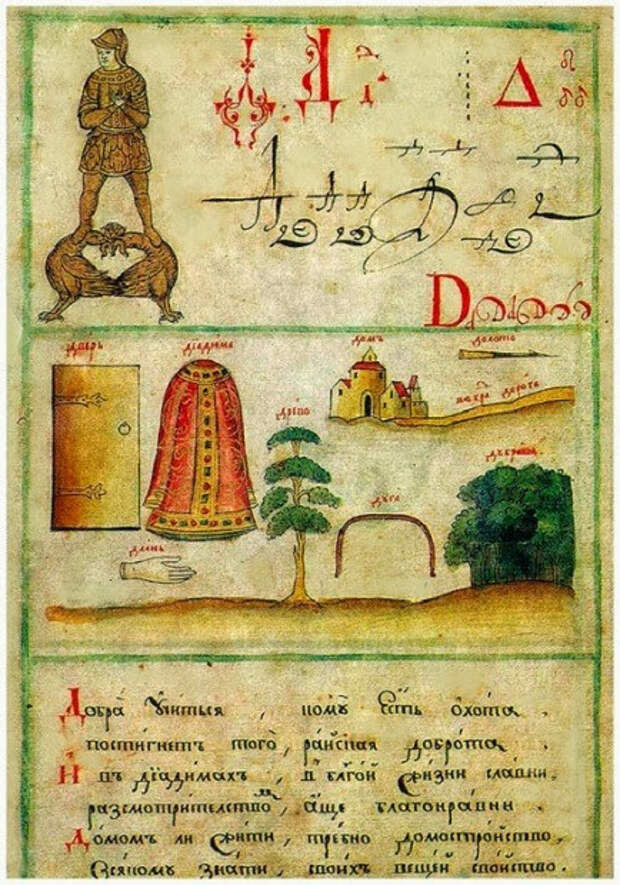 Д Д Д Δ
D
дверь дїадима домъ долото
дорога
древо
дуга дъбрава
длань
Добра учиться, кому есть охота
постигнетъ того, райская доброта.
И въ дїадимахъ, в благой жизни славни.
разсмотрителство, аще благонравни.
Домомъ ли жити, требно домостройство,
Всякому знати, своихъ вещей свойство.